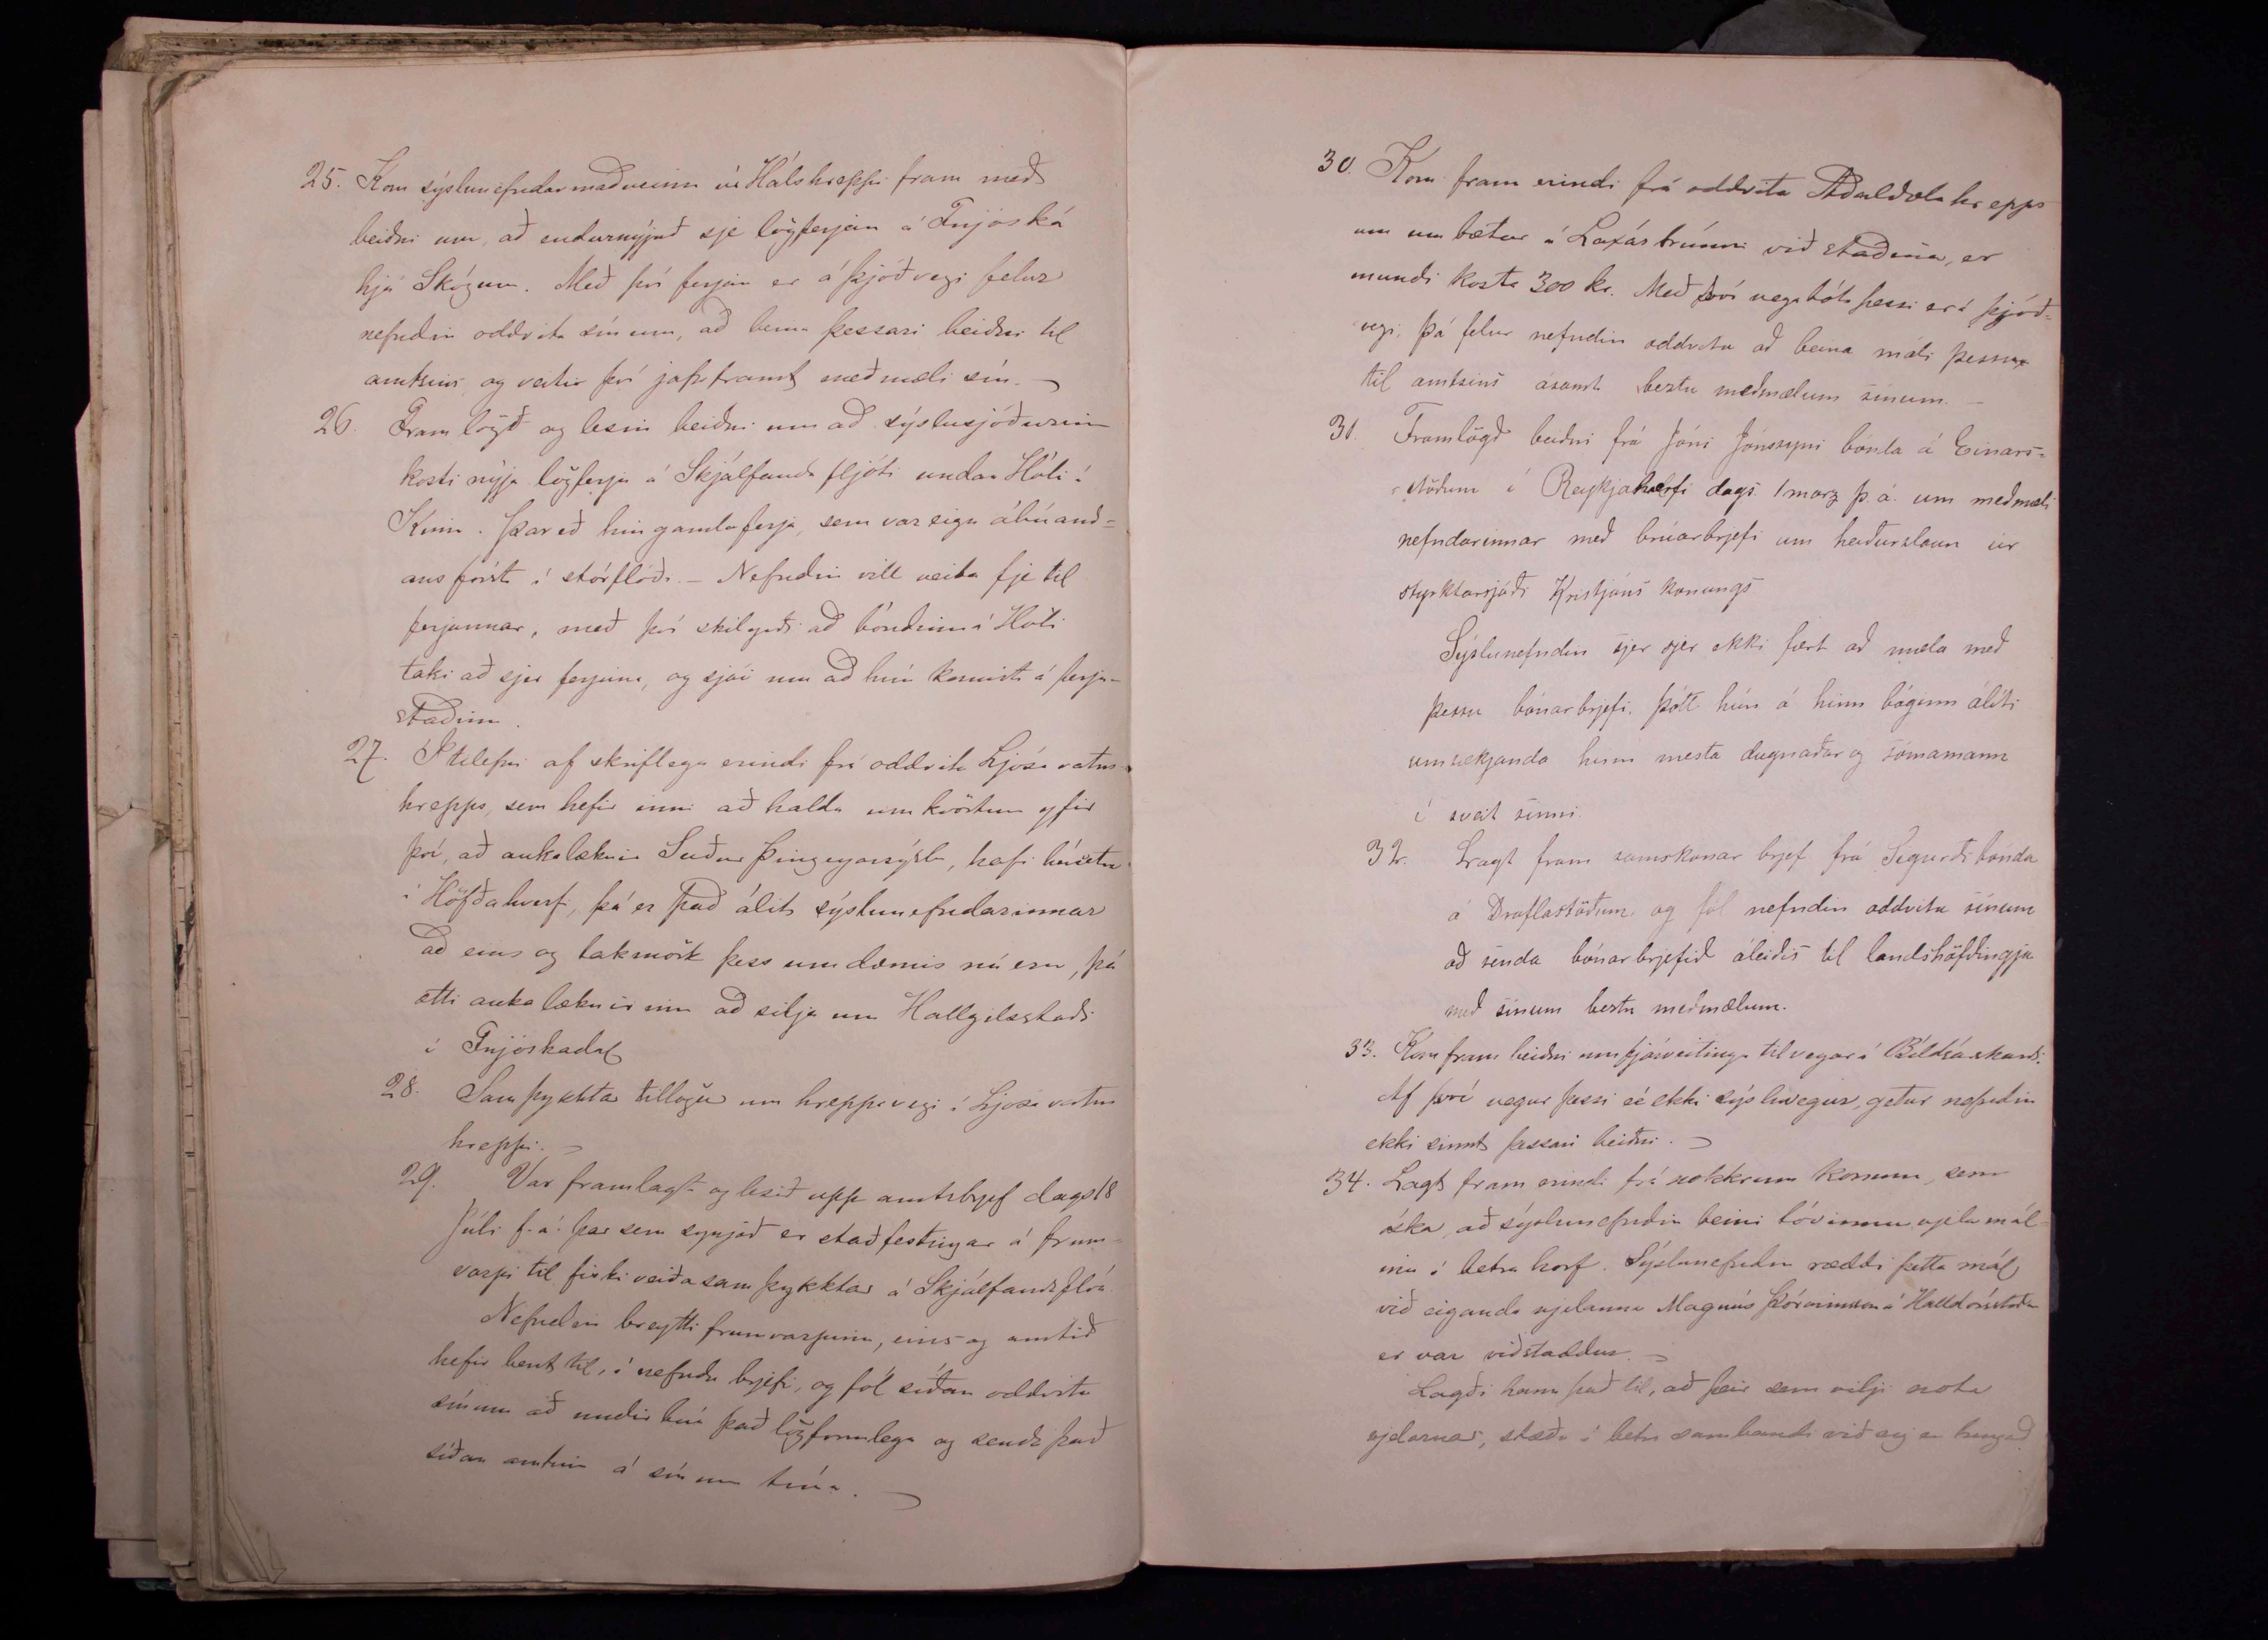 25. Kom sýslunefndarmaðurinn úr Hálshreppi fram með
beiðni um, að endurnýjuð sje lögferjan á Fnjóská
hjá Skógum. Með því ferjan er á þjóðvegi felur
nefndin oddvita sínum, að beina þessari beiðni til
amtsins og veitir því jafnframt meðmæli sín. —
26. Framlögð og lesin beiðni um að sýslusjóðurinn
kosti nýja lögferju á Skjálfandafljóti undan Hóli í
Kinn. Þareð hin gamla ferja, sem var eign ábúand=
ans fórst í stórflóði. — Nefndin vill veita fje til
ferjunnar, með því skilyrði að bóndinn á Hóli
taki að sjer ferjuna, og sjái um að hún komist á ferju-
staðinn.
27. Í tilefni af skriflegu erindi frá oddvita Ljósavatns-
hrepps, sem hefir inni að halda umkvörtun yfir
því, að aukalæknir Suður Þingeyarsýslu, hafi búsetu
í Höfðahverfi, þá er það álit sýslunefndarinnar
að eins og takmörk þess umdæmis nú eru, þá
ætti aukalæknirinn að sitja um Hallgilsstaði
í Fnjóskadal
28. Samþykktar tillögur um hreppsvegi í Ljósavatns
hreppi. —
29. Var framlagt og lesið upp amtsbrjef dags 18
Júlí f. á. þar sem synjað er staðfestingar á frum-
varpi til fiskiveiðasamþykktar á Skjálfandaflóa.
Nefndin breytti frumvarpinu, eins og amtið
hefir bent til, í nefndu brjefi, og fól síðan oddvita
sínum að undirbúa það lögformlega og senda það
síðan amtinu á sínum tíma. —
30. Kom fram erindi frá oddvita Aðaldælahrepps
um umbætur á Laxárbrúnni við staðina, er
mundi kosta 300 kr. Með því vegabót þessi er á þjóð=
vegi, þá felur nefndin oddvita að beina máli þessu
til amtsins ásamt beztu meðmælum sínum. —
31. Framlögð beiðni frá Jóni Jónssyni bónda á Einars=
stöðum í Reykjahverfi dags. 1 marz þ. á. um meðmæli
nefndarinnar með bónarbrjefi um heiðurslaun úr
styrktarsjóði Kristjáns konungs
Sýslunefndin sjer sjer ekki fært að mæla með
þessu bónarbrjefi, þótt hún á hinn bóginn áliti
umsækjanda hinn mesta dugnaðar og sómamann
í sveit sinni.
32. Lagt fram samskonar brjef frá Sigurði bónda
á Draflastöðum, og fól nefndin oddvita sínum
að senda bónarbrjefið áleiðis til landshöfðingja
með sínum beztu meðmælum.
33. Kom fram beiðni um fjárveitingu til vegar á Bíldsárskarði.
Af því vegur þessi er ekki sýsluvegur, getur nefndin
ekki sinnt þessari beiðni. —
34. Lagt fram erindi frá nokkrum konum, sem
óska, að sýslunefndin beini tóvinnuvjela mál-
inu í betra horf. Sýslunefndin ræddi þetta mál
við eiganda vjelanna Magnús Þórarinsson á Halldórsstöðum
er var viðstaddur. —
Lagði hann það til, að þeir sem vilji nota
vjelarnar, stæðu í betra sambandi við sig en hingað